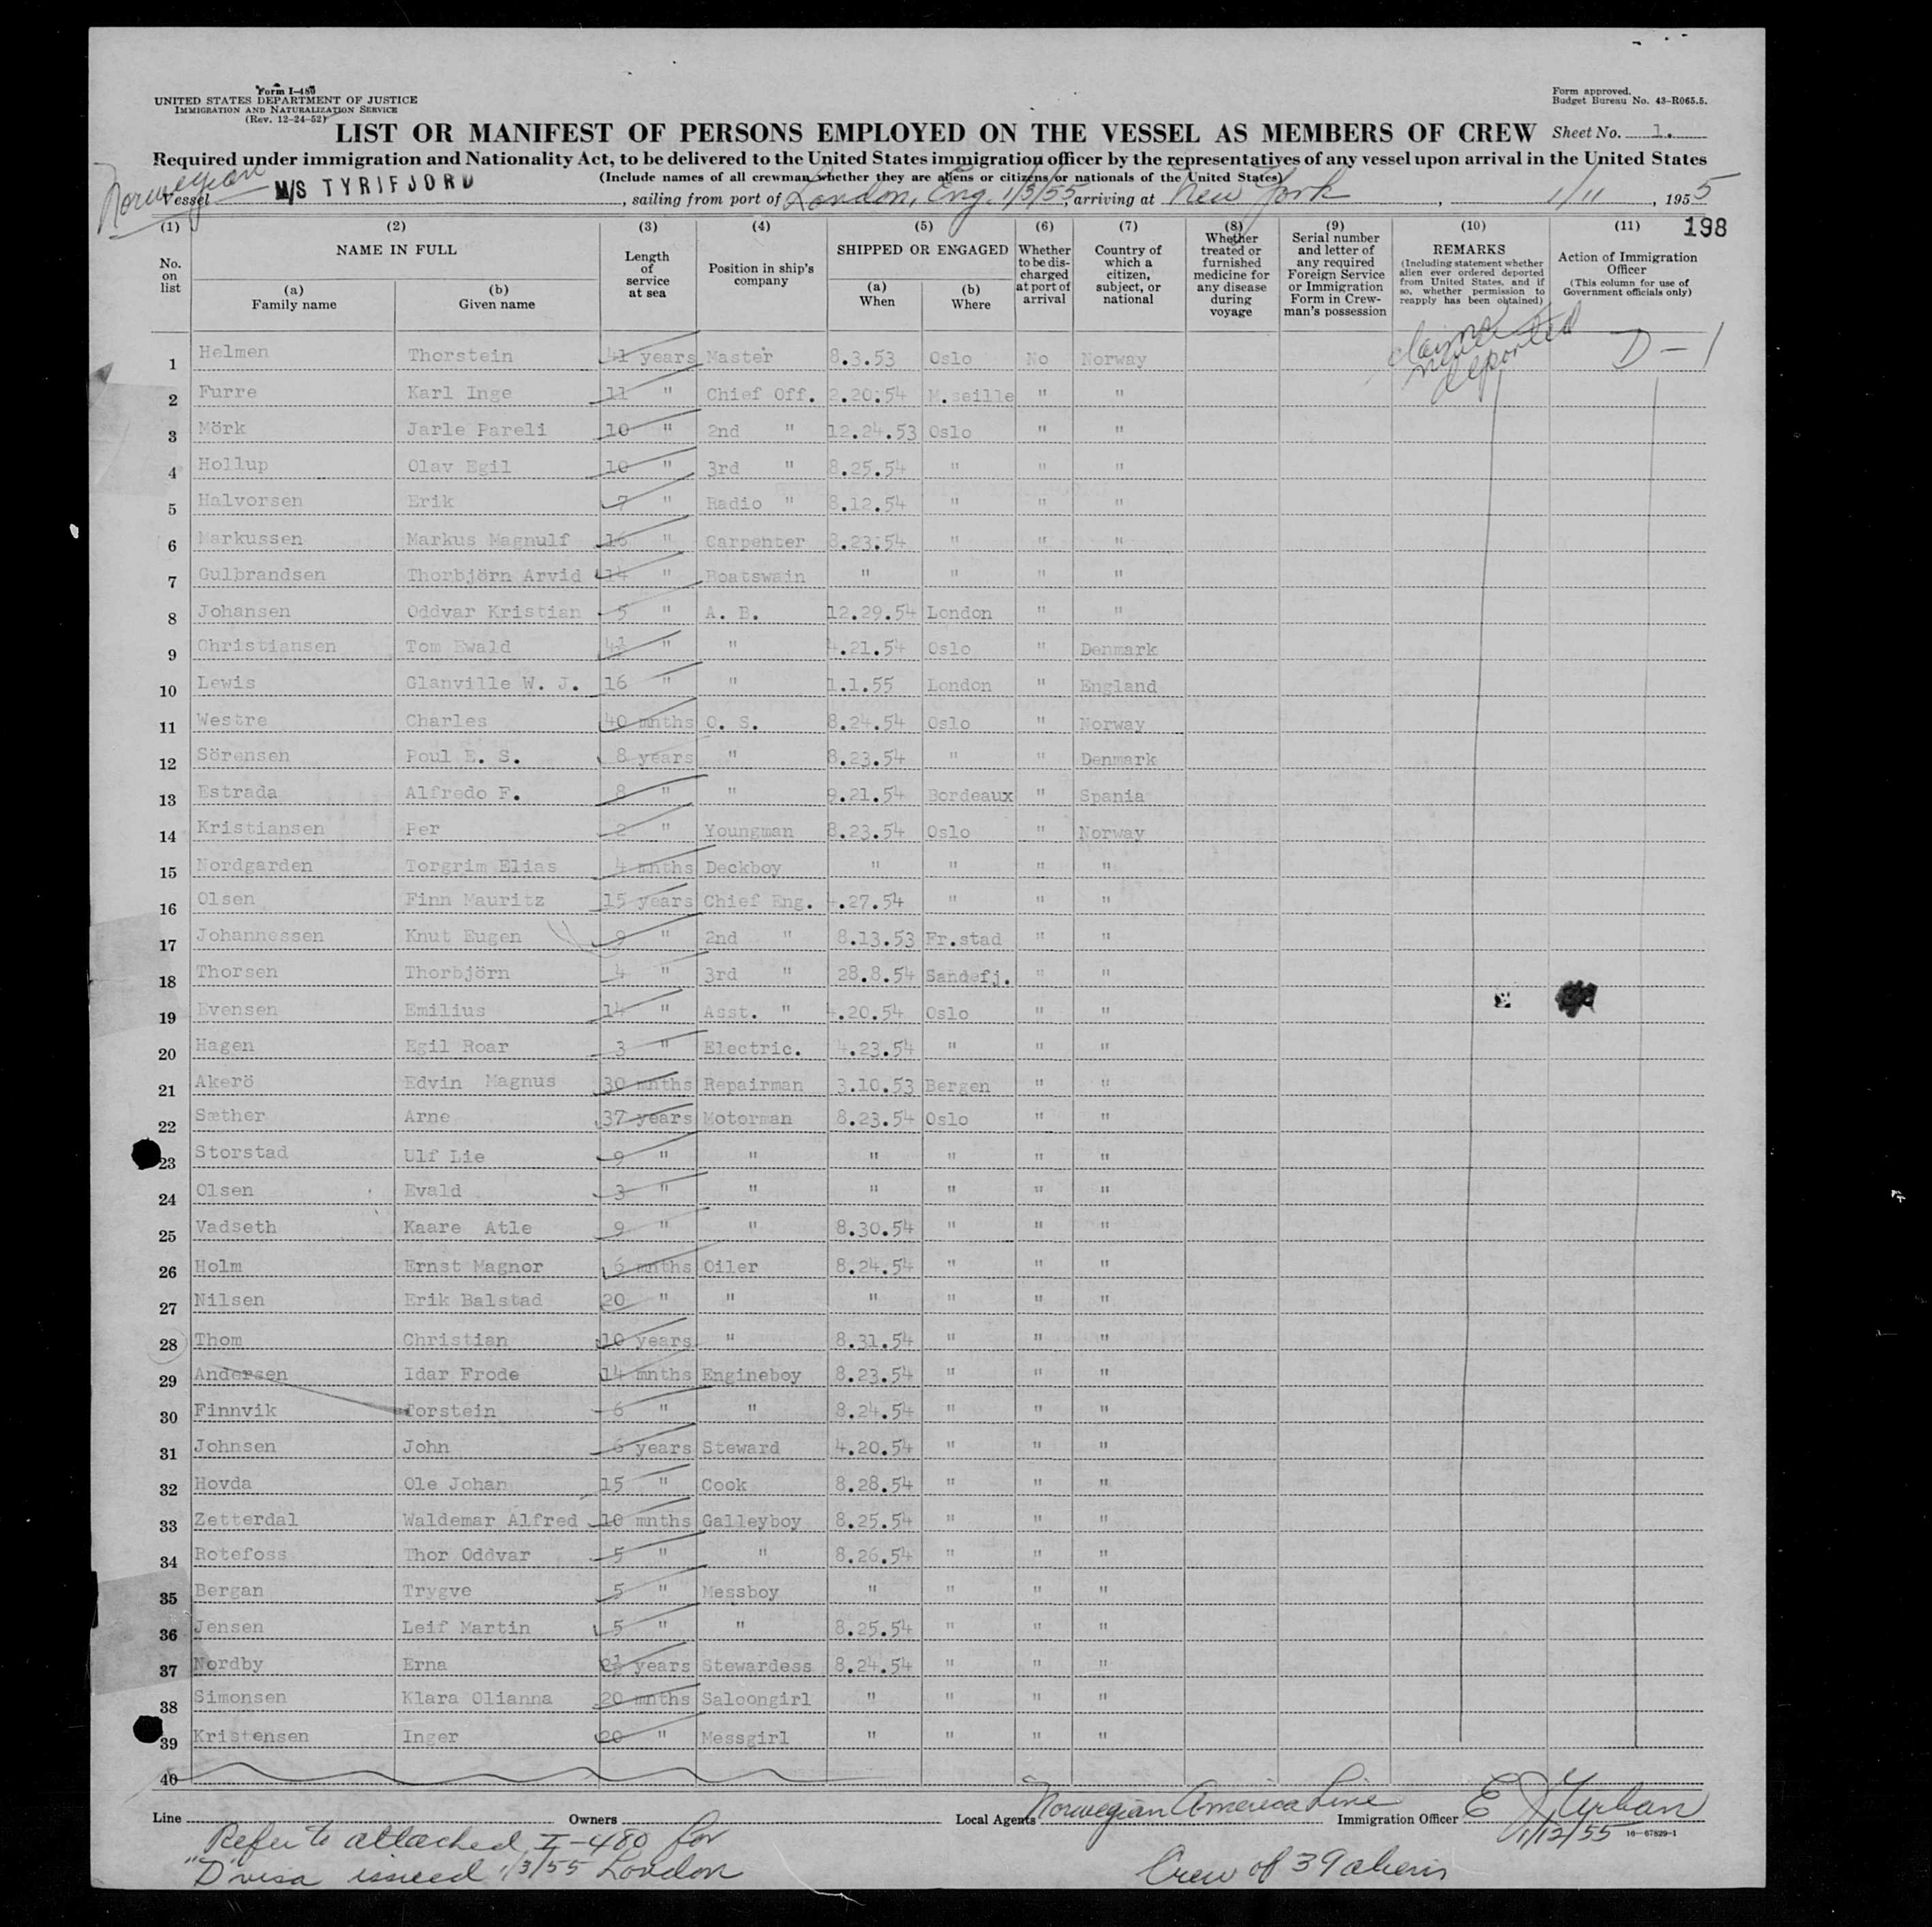 Form I-480
UNITED STATES DEPARTMENT OF JUSTICE
IMMIGRATION AND NATURALIZATION SERVICE
(Rev. 12-24-52)
Form approved.
Budget Bureau No. 43-R065.5.
LIST OR MANIFEST OF PERSONS EMPLOYED ON THE VESSEL AS MEMBERS OF CREW Sheet No. 1.
Required under immigration and Nationality Act, to be delivered to the United States immigration officer by the representatives of any vessel upon arrival in the United States
(Include names of all crewman whether they are aliens or citizens or nationals of the United States)
Norwegian
Vessel M/S TYRIFJORD, sailing from port of London, Eng. 1/3/55, arriving at New York, 1/11, 1955
198
(1) No. on list
(2) NAME IN FULL (a) Family name (b) Given name
(3) Length of service at sea
(4) Position in ship's company
(5) SHIPPED OR ENGAGED (a) When (b) Where
(6) Whether to be discharged at port of arrival
(7) Country of which a citizen, subject, or national
(8) Whether treated or furnished medicine for any disease during voyage
(9) Serial number and letter of any required Foreign Service or Immigration Form in Crewman's possession
(10) REMARKS (Including statement whether alien ever ordered deported from United States, and if so, whether permission to reapply has been obtained)
(11) Action of Immigration Officer (This column for use of Government officials only)
1 Helmen Thorstein 41 years Master 8.3.53 Oslo No Norway never deported D-1
2 Furre Karl Inge 11 " Chief Off. 2.20.54 M.seille " "
3 Mörk Jarle Pareli 10 " 2nd " 12.24.53 Oslo " "
4 Hollup Olav Egil 10 " 3rd " 8.25.54 " " "
5 Halvorsen Erik 7 " Radio " 8.12.54 " " "
6 Markussen Markus Magnulf 16 " Carpenter 8.23.54 " " "
7 Gulbrandsen Thorbjörn Arvid 14 " Boatswain " " " "
8 Johansen Oddvar Kristian 5 " A. B. 12.29.54 London " "
9 Christiansen Tom Ewald 4½ " " 4.21.54 Oslo " Denmark
10 Lewis Glanville W. J. 16 " " 1.1.55 London " England
11 Westre Charles 40 mnths O. S. 8.24.54 Oslo " Norway
12 Sörensen Poul E. S. 8 years " 8.23.54 " " Denmark
13 Estrada Alfredo F. 8 " " 9.21.54 Bordeaux " Spania
14 Kristiansen Per 2 " Youngman 8.23.54 Oslo " Norway
15 Nordgarden Torgrim Elias 4 mnths Deckboy " " " "
16 Olsen Finn Mauritz 15 years Chief Eng. 4.27.54 " " "
17 Johannessen Knut Eugen 9 " 2nd " 8.13.53 Fr.stad " "
18 Thorsen Thorbjörn 4 " 3rd " 28.8.54 Sandefj. " "
19 Evensen Emilius 14 " Asst. " 4.20.54 Oslo " "
20 Hagen Egil Roar 3 " Electric. 4.23.54 " " "
21 Akerö Edvin Magnus 30 mnths Repairman 3.10.53 Bergen " "
22 Sæther Arne 37 years Motorman 8.23.54 Oslo " "
23 Storstad Ulf Lie 9 " " " " " "
24 Olsen Evald 3 " " " " " "
25 Vadseth Kaare Atle 9 " " 8.30.54 " " "
26 Holm Ernst Magnor 6 mnths Oiler 8.24.54 " " "
27 Nilsen Erik Balstad 20 " " " " " "
28 Thom Christian 10 years " 8.31.54 " " "
29 Andersen Idar Frode 14 mnths Engineboy 8.23.54 " " "
30 Finnvik Torstein 6 " " 8.24.54 " " "
31 Johnsen John 6 years Steward 4.20.54 " " "
32 Hovda Ole Johan 15 " Cook 8.28.54 " " "
33 Zetterdal Waldemar Alfred 10 mnths Galleyboy 8.25.54 " " "
34 Rotefoss Thor Oddvar 5 " " 8.26.54 " " "
35 Bergan Trygve 5 " Messboy " " " "
36 Jensen Leif Martin 5 " " 8.25.54 " " "
37 Nordby Erna 2½ years Stewardess 8.24.54 " " "
38 Simonsen Klara Olianna 20 mnths Saloongirl " " " "
39 Kristensen Inger 20 " Messgirl " " " "
40
Line Owners Local Agents Norwegian America Line Immigration Officer
1/12/55 16-67829-1
Refer to attached I-480 for
"D" visa issued 1/3/55 London
Crew of 39 aliens